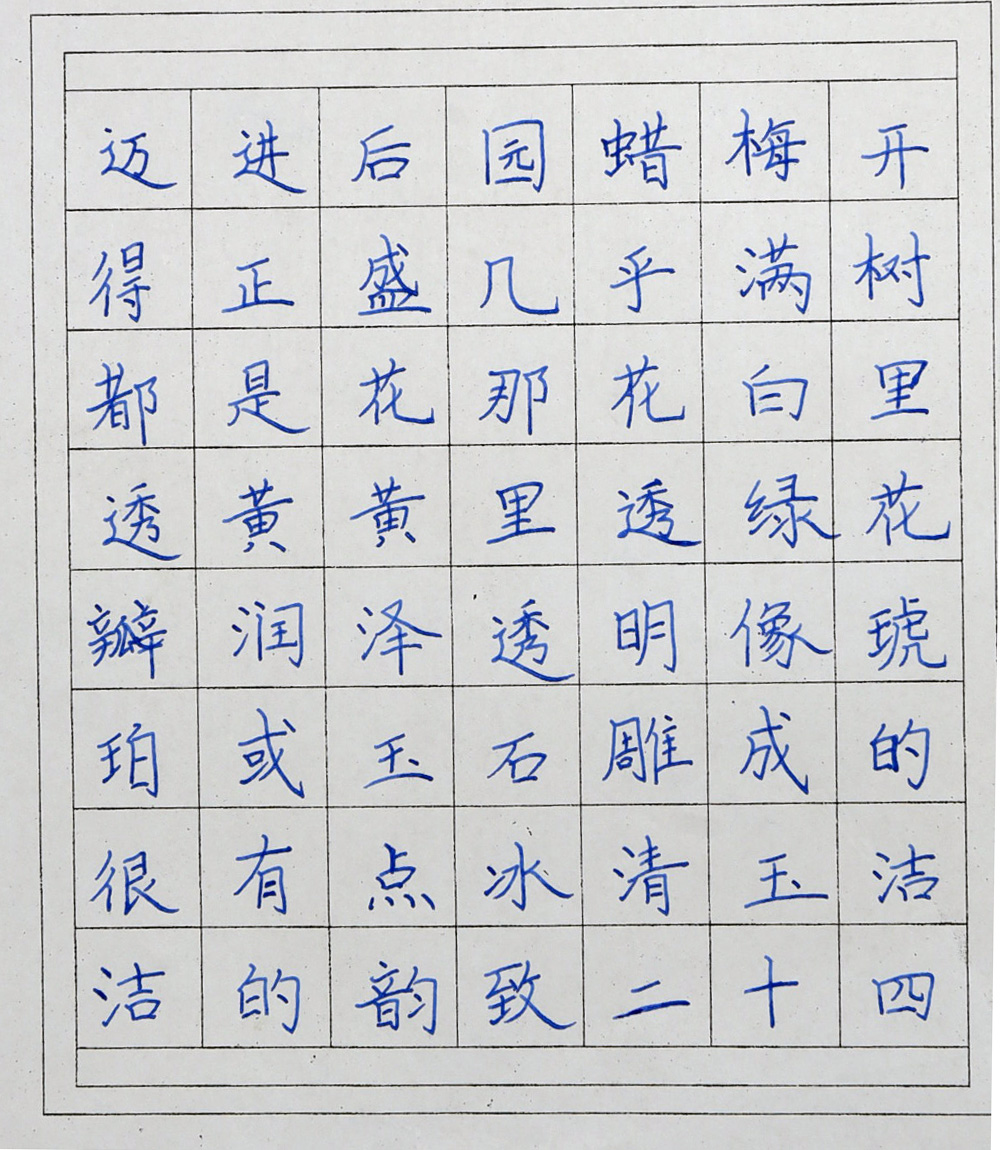 迈进后园蜡梅开
得正盛几乎满树
都是花那花白里
透黄黄里透绿花
瓣润泽透明像琥
珀或玉石雕成的
很有点冰清玉洁
洁的韵致二十四